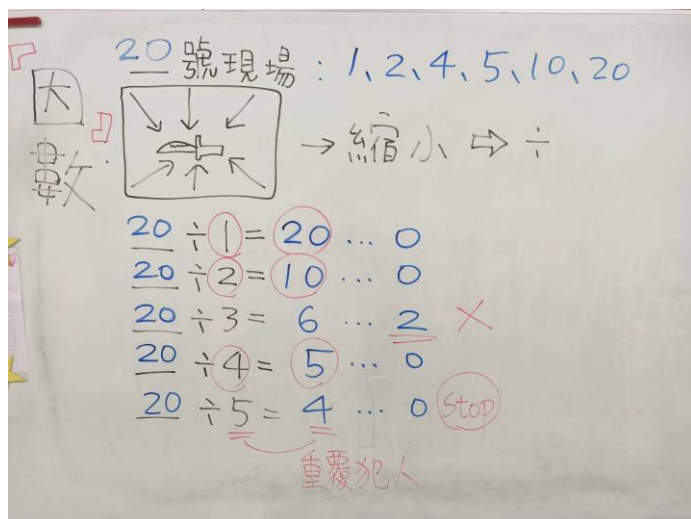 『因數』
20號現場：1、2、4、5、10、20
→縮小⇨÷
20÷1=20…0
20÷2=10…0
20÷3=6…2 ×
20÷4=5…0
20÷5=4…0 Stop
重覆犯人